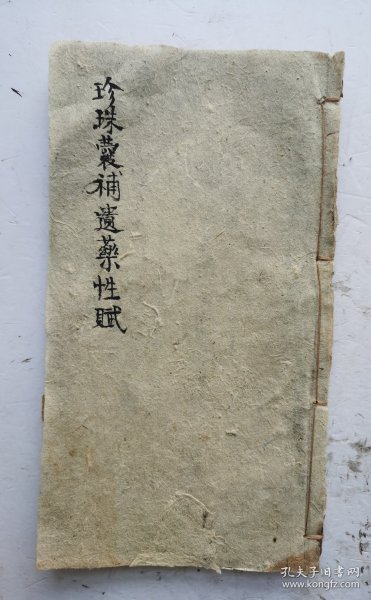 珍珠囊補遺藥性賦
孔夫子旧书网
www.kongfz.com